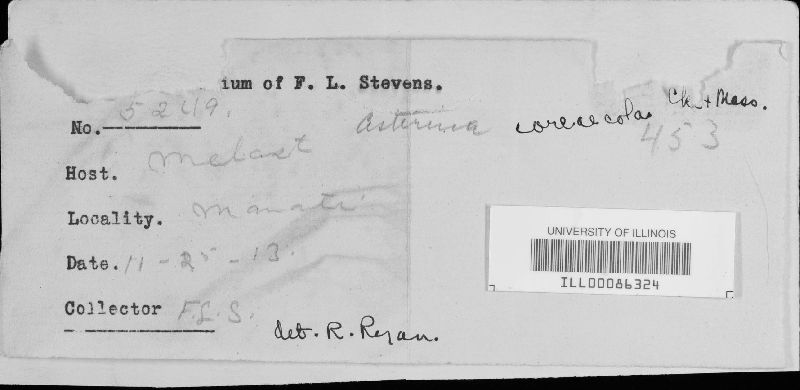 ium of F. L. Stevens.
No. 5249.
Asterina coreaecola Ck. + Mass.
453
Host. Melast
Locality. Manati
Date. 11-25-13.
Collector F.L.S.
det. R. Ryan.
UNIVERSITY OF ILLINOIS
ILL00086324